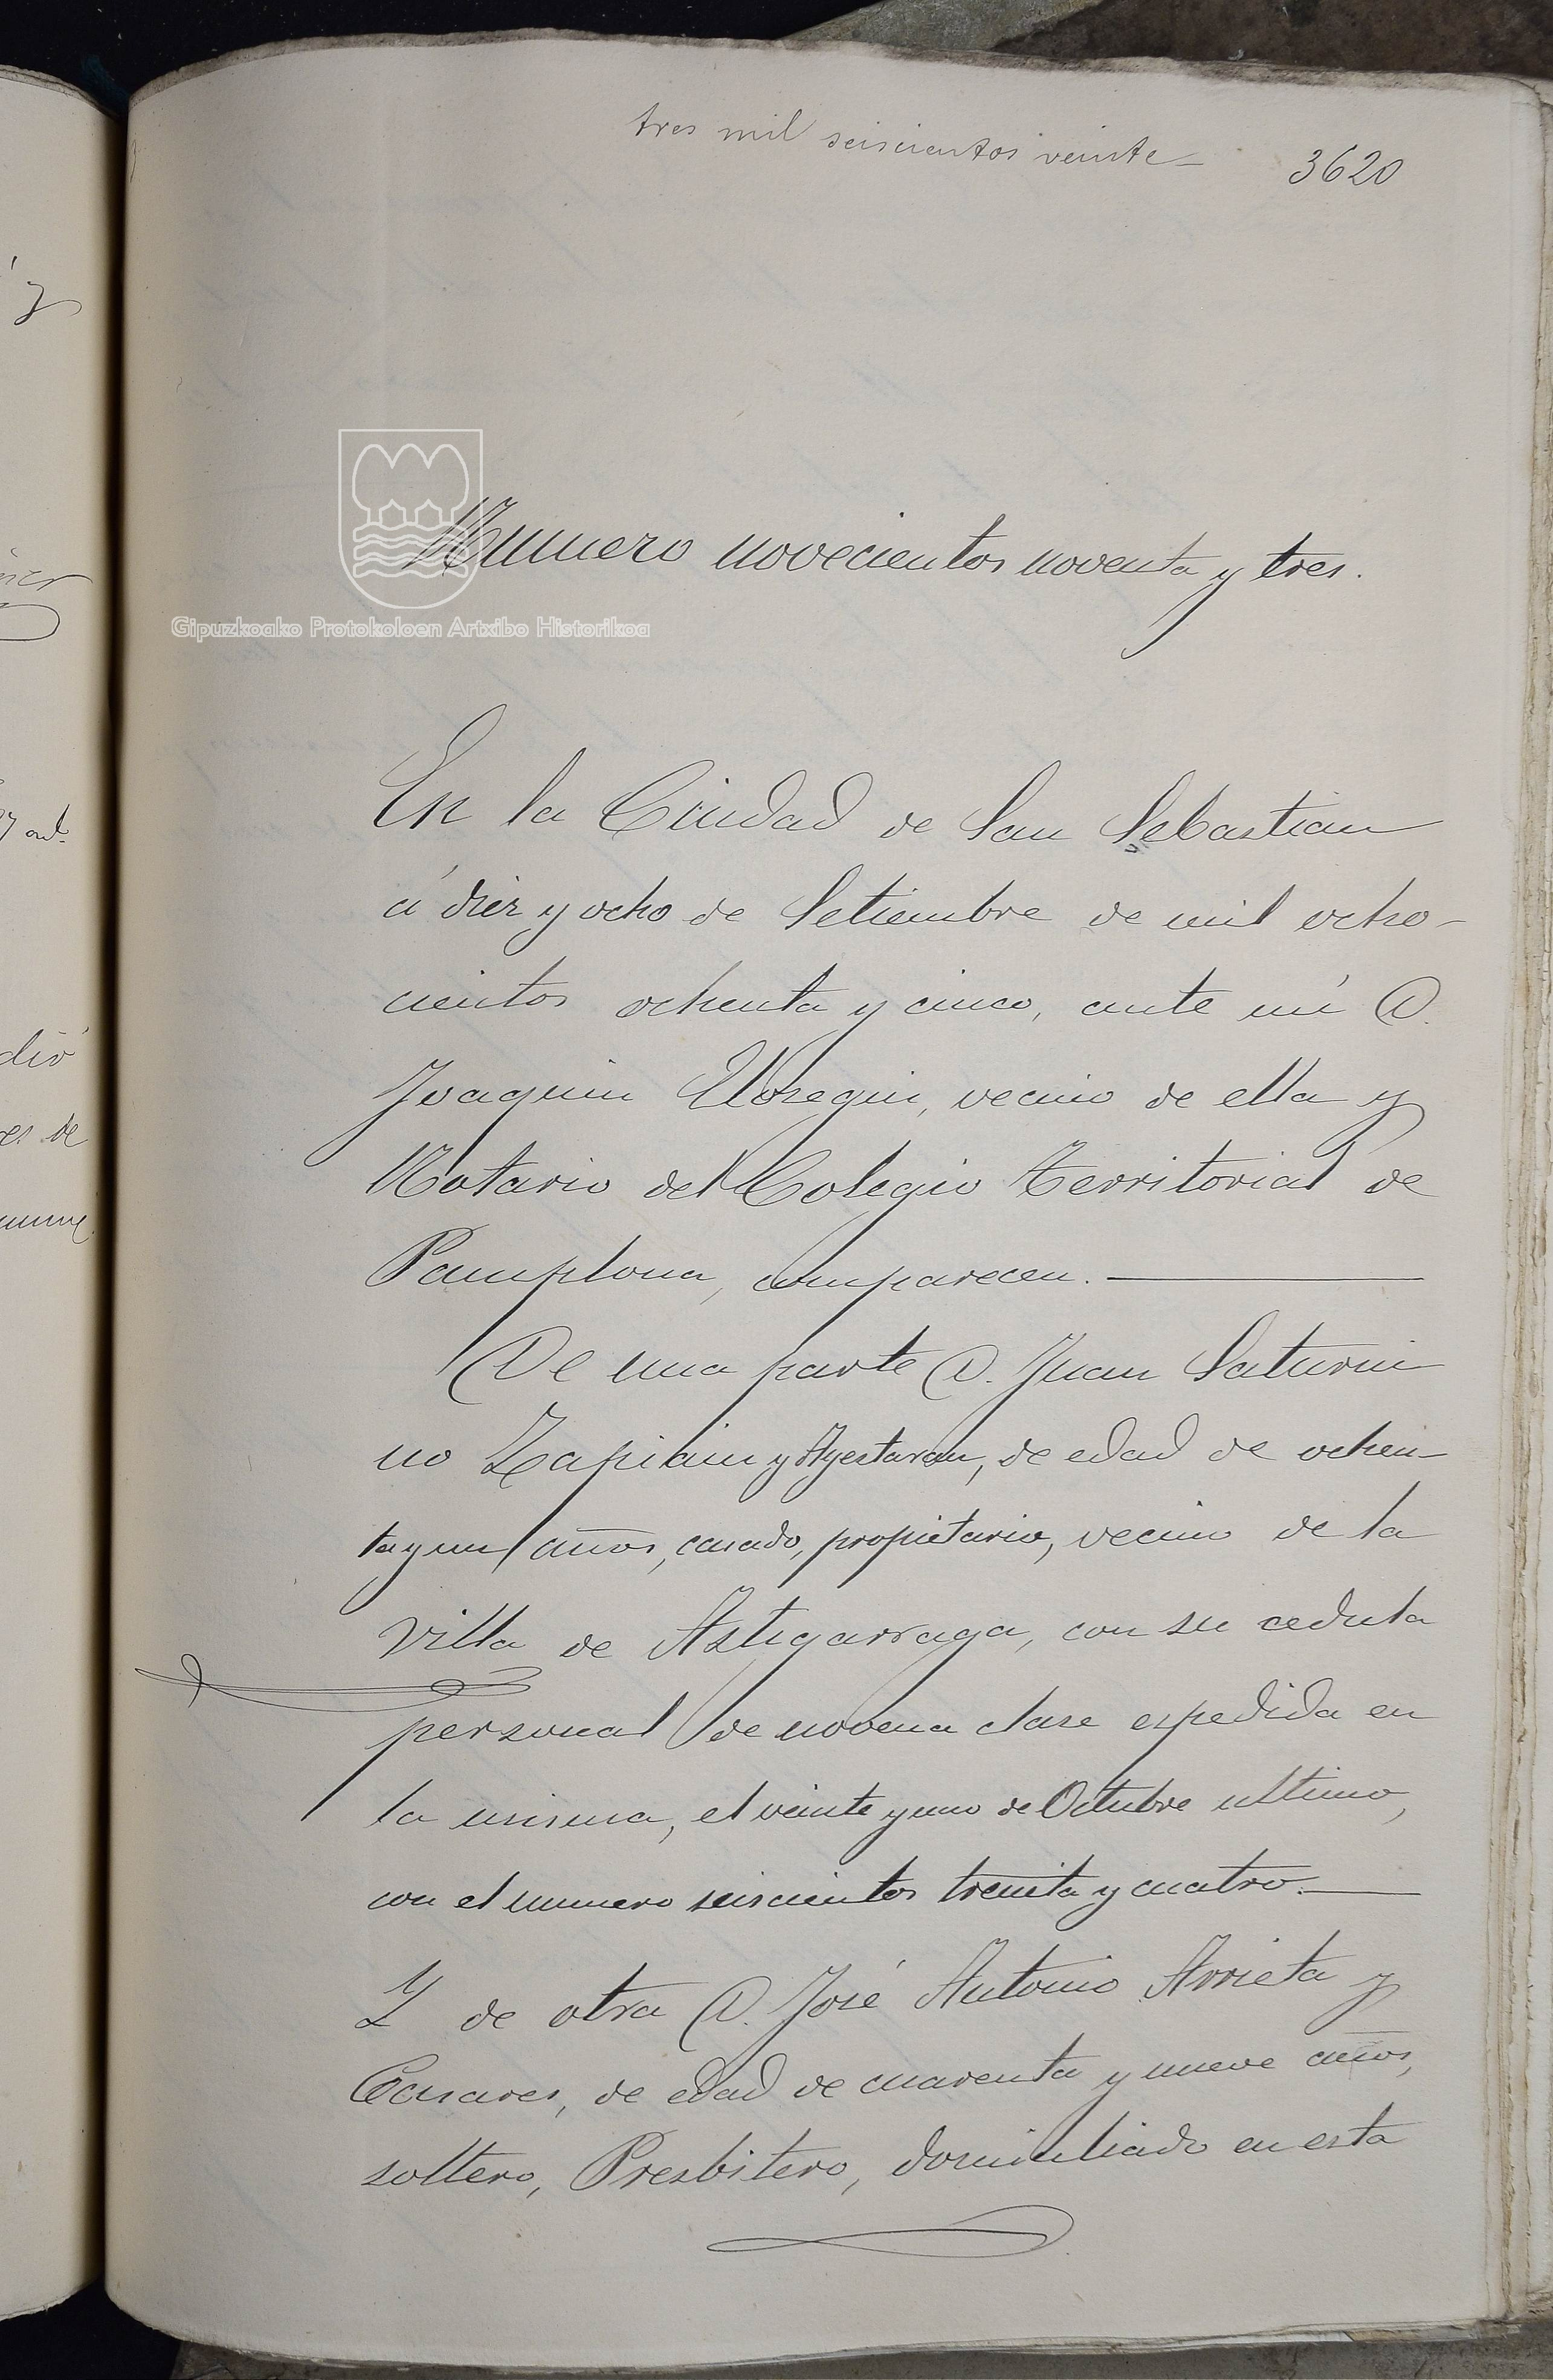 tres mil seiscientos veinte
3620
Numero novecientos noventa y tres.
Gipuzkoako Protokoloen Artxibo Historikoa
En la Ciudad de San Sebastian
á diez y ocho de Setiembre de mil ocho-
cientos ochenta y cinco, ante mi D.
Joaquin Elosegui, vecino de ella y
Notario del Colegio Territorial de
Pamplona, comparecen.
De una parte D. Juan Saturni
no Zapiain y Ayestaran, de edad de ochen-
ta y un años, casado, propietario, vecino de la
villa de Astigarraga, con su cedula
personal de novena clase espedida en
la misma, el veinte y uno de Octubre ultimo,
con el numero seiscientos treinta y cuatro.
Y de otra D. José Antonio Arrieta y
Casares, de edad de cuarenta y nueve años,
soltero, Presbitero, domiciliado en esta
y
dió
es de